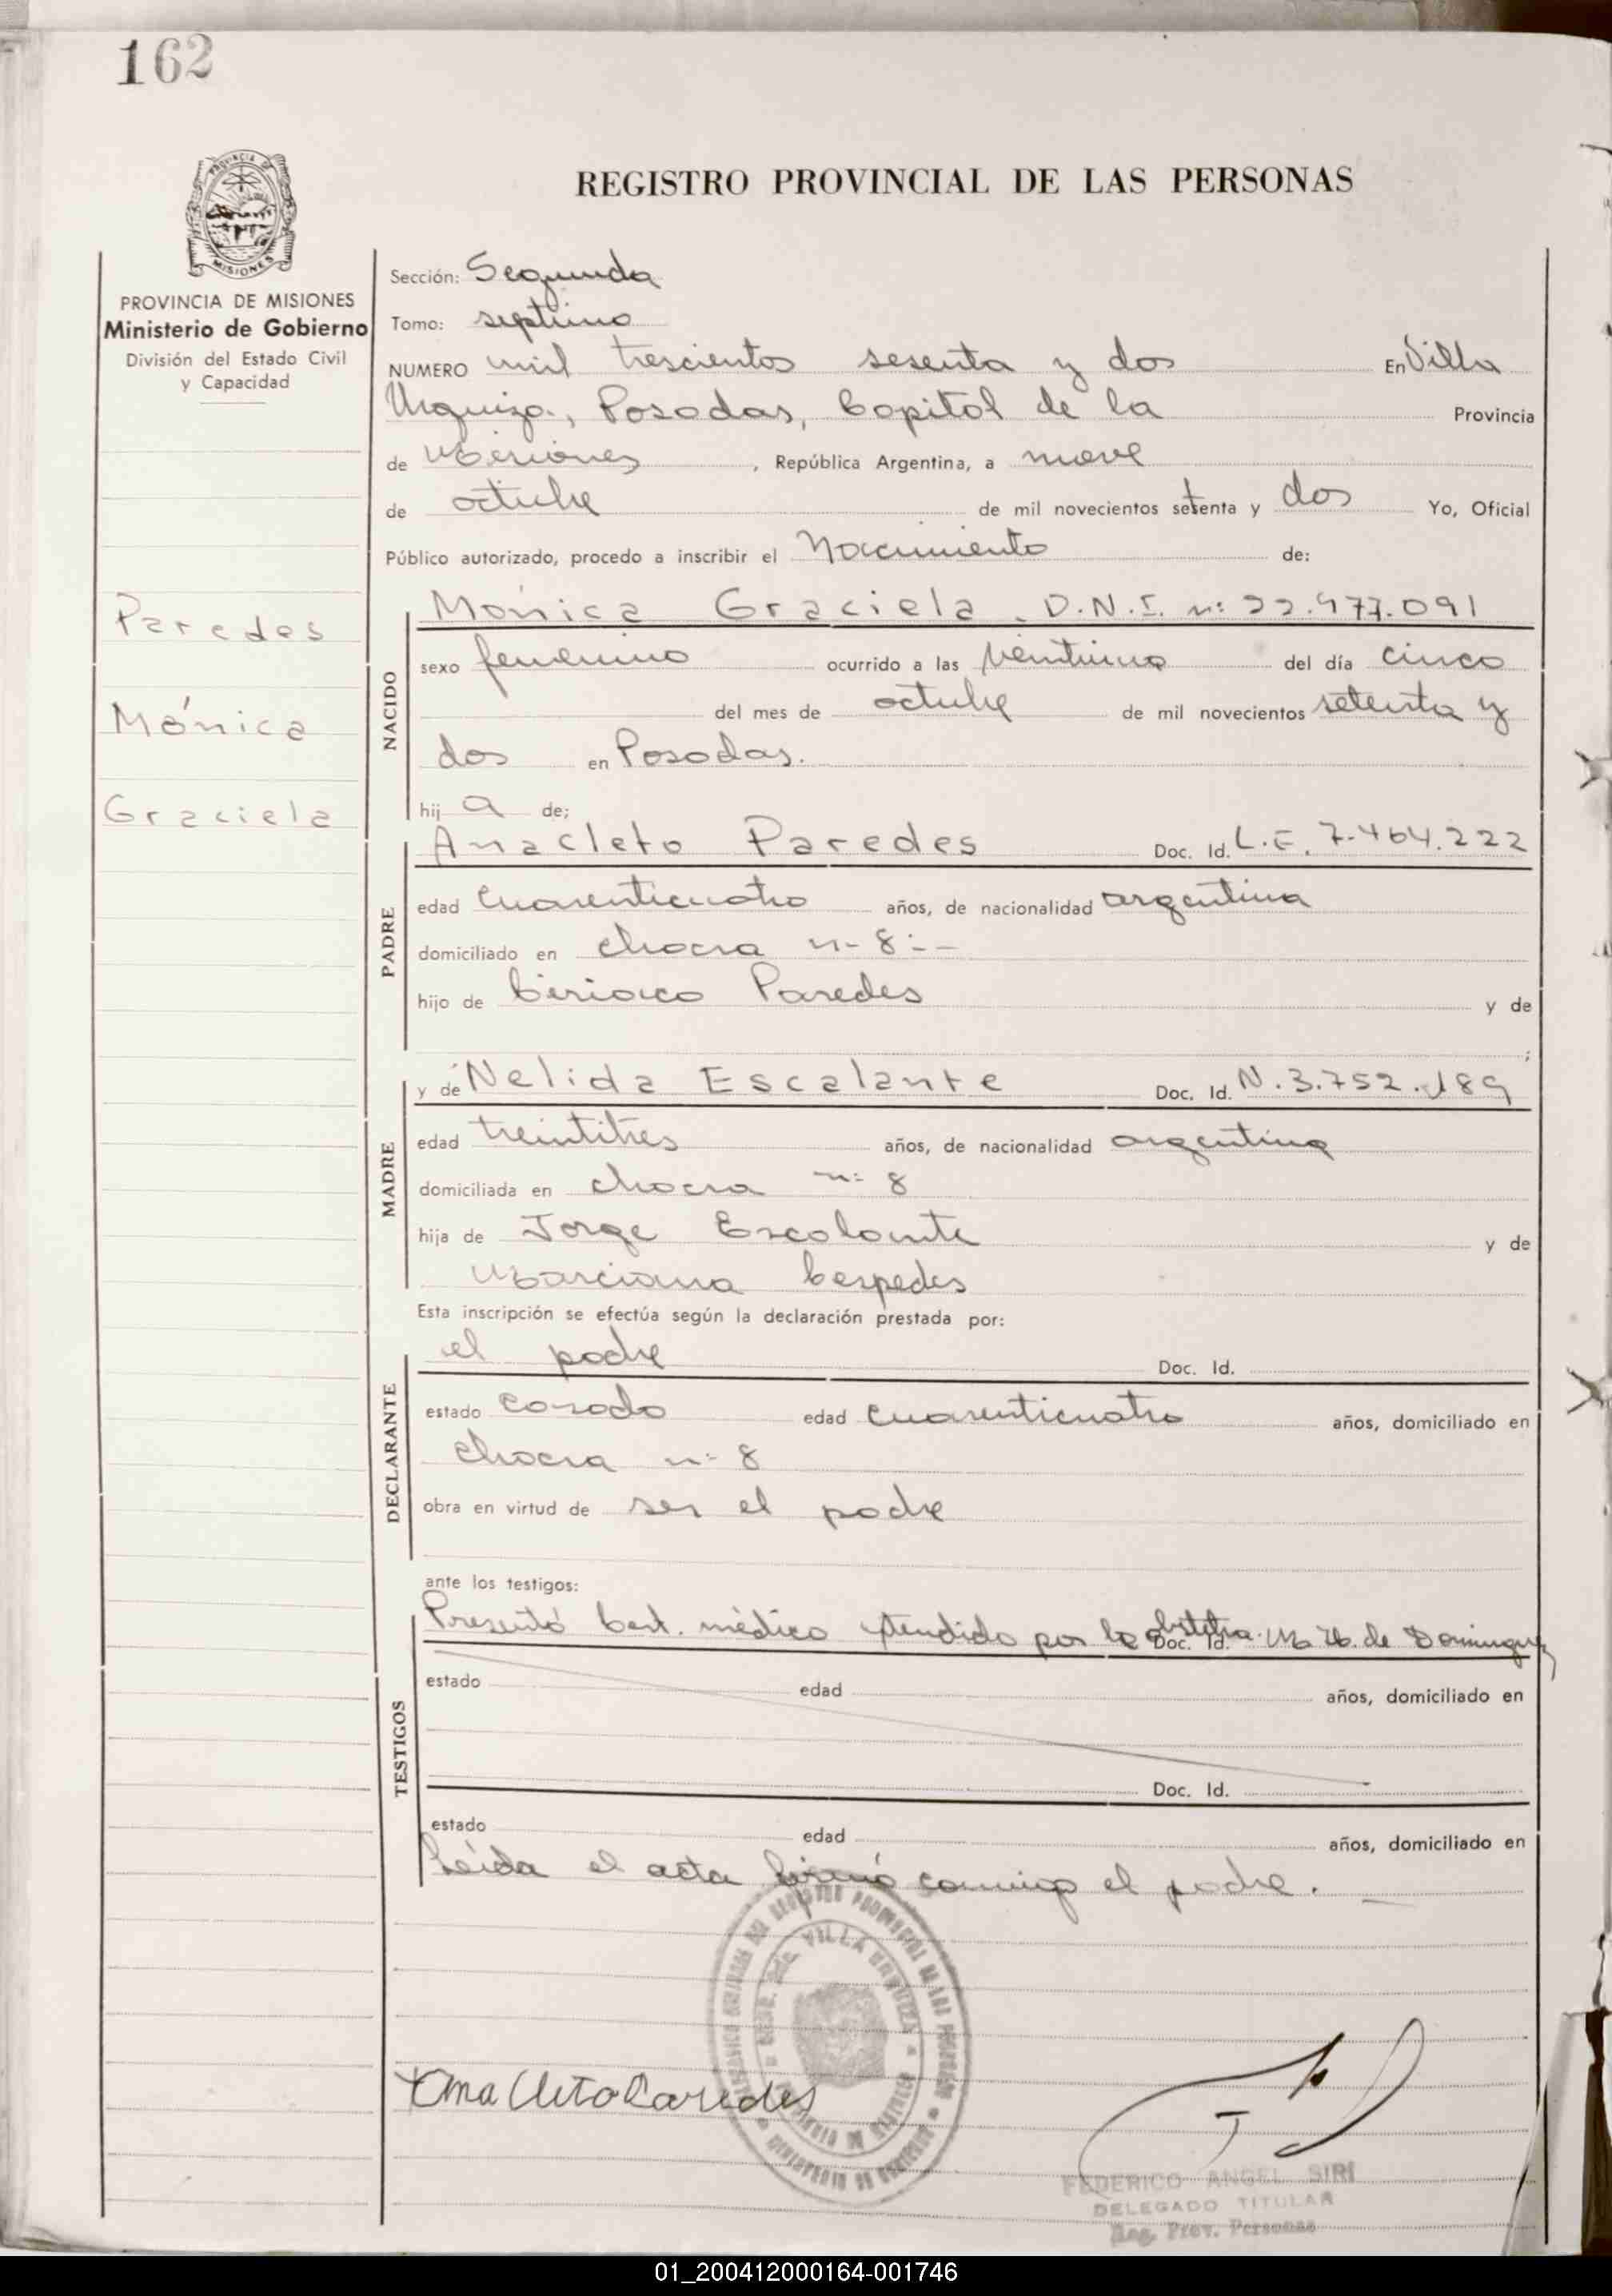 162
REGISTRO PROVINCIAL DE LAS PERSONAS
MISIONES
PROVINCIA DE MISIONES
Ministerio de Gobierno
División del Estado Civil
y Capacidad
Paredes
Mónica
Graciela
Sección: Segunda
Tomo: septimo
NUMERO mil trescientos sesenta y dos En Villa
Urquiza, Posadas, Capital de la Provincia
de Misiones, República Argentina, a nueve
de octubre de mil novecientos setenta y dos Yo, Oficial
Público autorizado, procedo a inscribir el Nacimiento de:
NACIDO
Mónica Graciela. D.N.I. nº: 22.477.091
sexo femenino ocurrido a las veintiuna del día cinco
del mes de octubre de mil novecientos setenta y
dos en Posadas.
hij a de;
PADRE
Anacleto Paredes Doc. Id. L.E. 7.464.222
edad cuarenticuatro años, de nacionalidad argentina
domiciliado en chacra nº 8:-
hijo de Ciriaco Paredes y de
;
MADRE
y de Nelida Escalante Doc. Id. N. 3.752.189
edad treintitres años, de nacionalidad argentina
domiciliada en chacra nº 8
hija de Jorge Escalante y de
Marciana Cespedes
Esta inscripción se efectúa según la declaración prestada por:
DECLARANTE
el padre Doc. Id.
estado casado edad cuarenticuatro años, domiciliado en
chacra nº 8
obra en virtud de ser el padre
ante los testigos:
TESTIGOS
Presentó Cert. médico extendido por la obstetra. Doc. Id. de Dominguez
estado edad años, domiciliado en
Doc. Id.
estado edad años, domiciliado en
Leída el acta firmó conmigo el padre.
VILLA URQUIZA
Anacleto Paredes
FEDERICO ANGEL SIRI
DELEGADO TITULAR
Reg. Prov. Personas
01_200412000164-001746